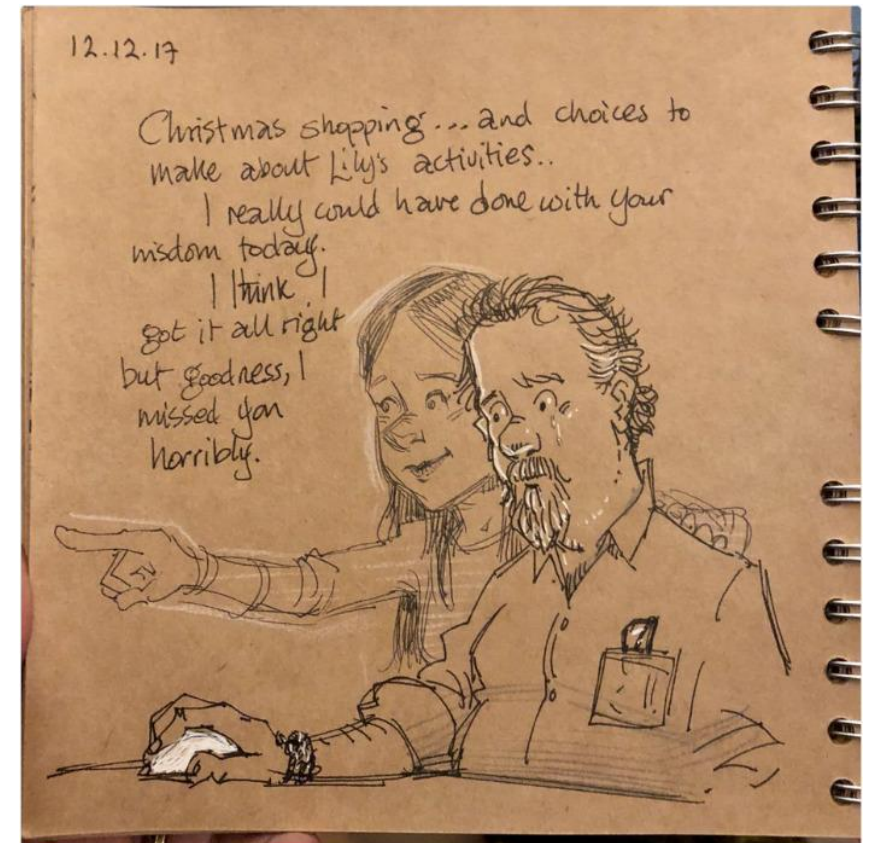 12.12.17
Christmas shopping... and choices to
make about Lily's activities..
I really could have done with your
wisdom today.
I think I
got it all right
but goodness, I
missed you
horribly.